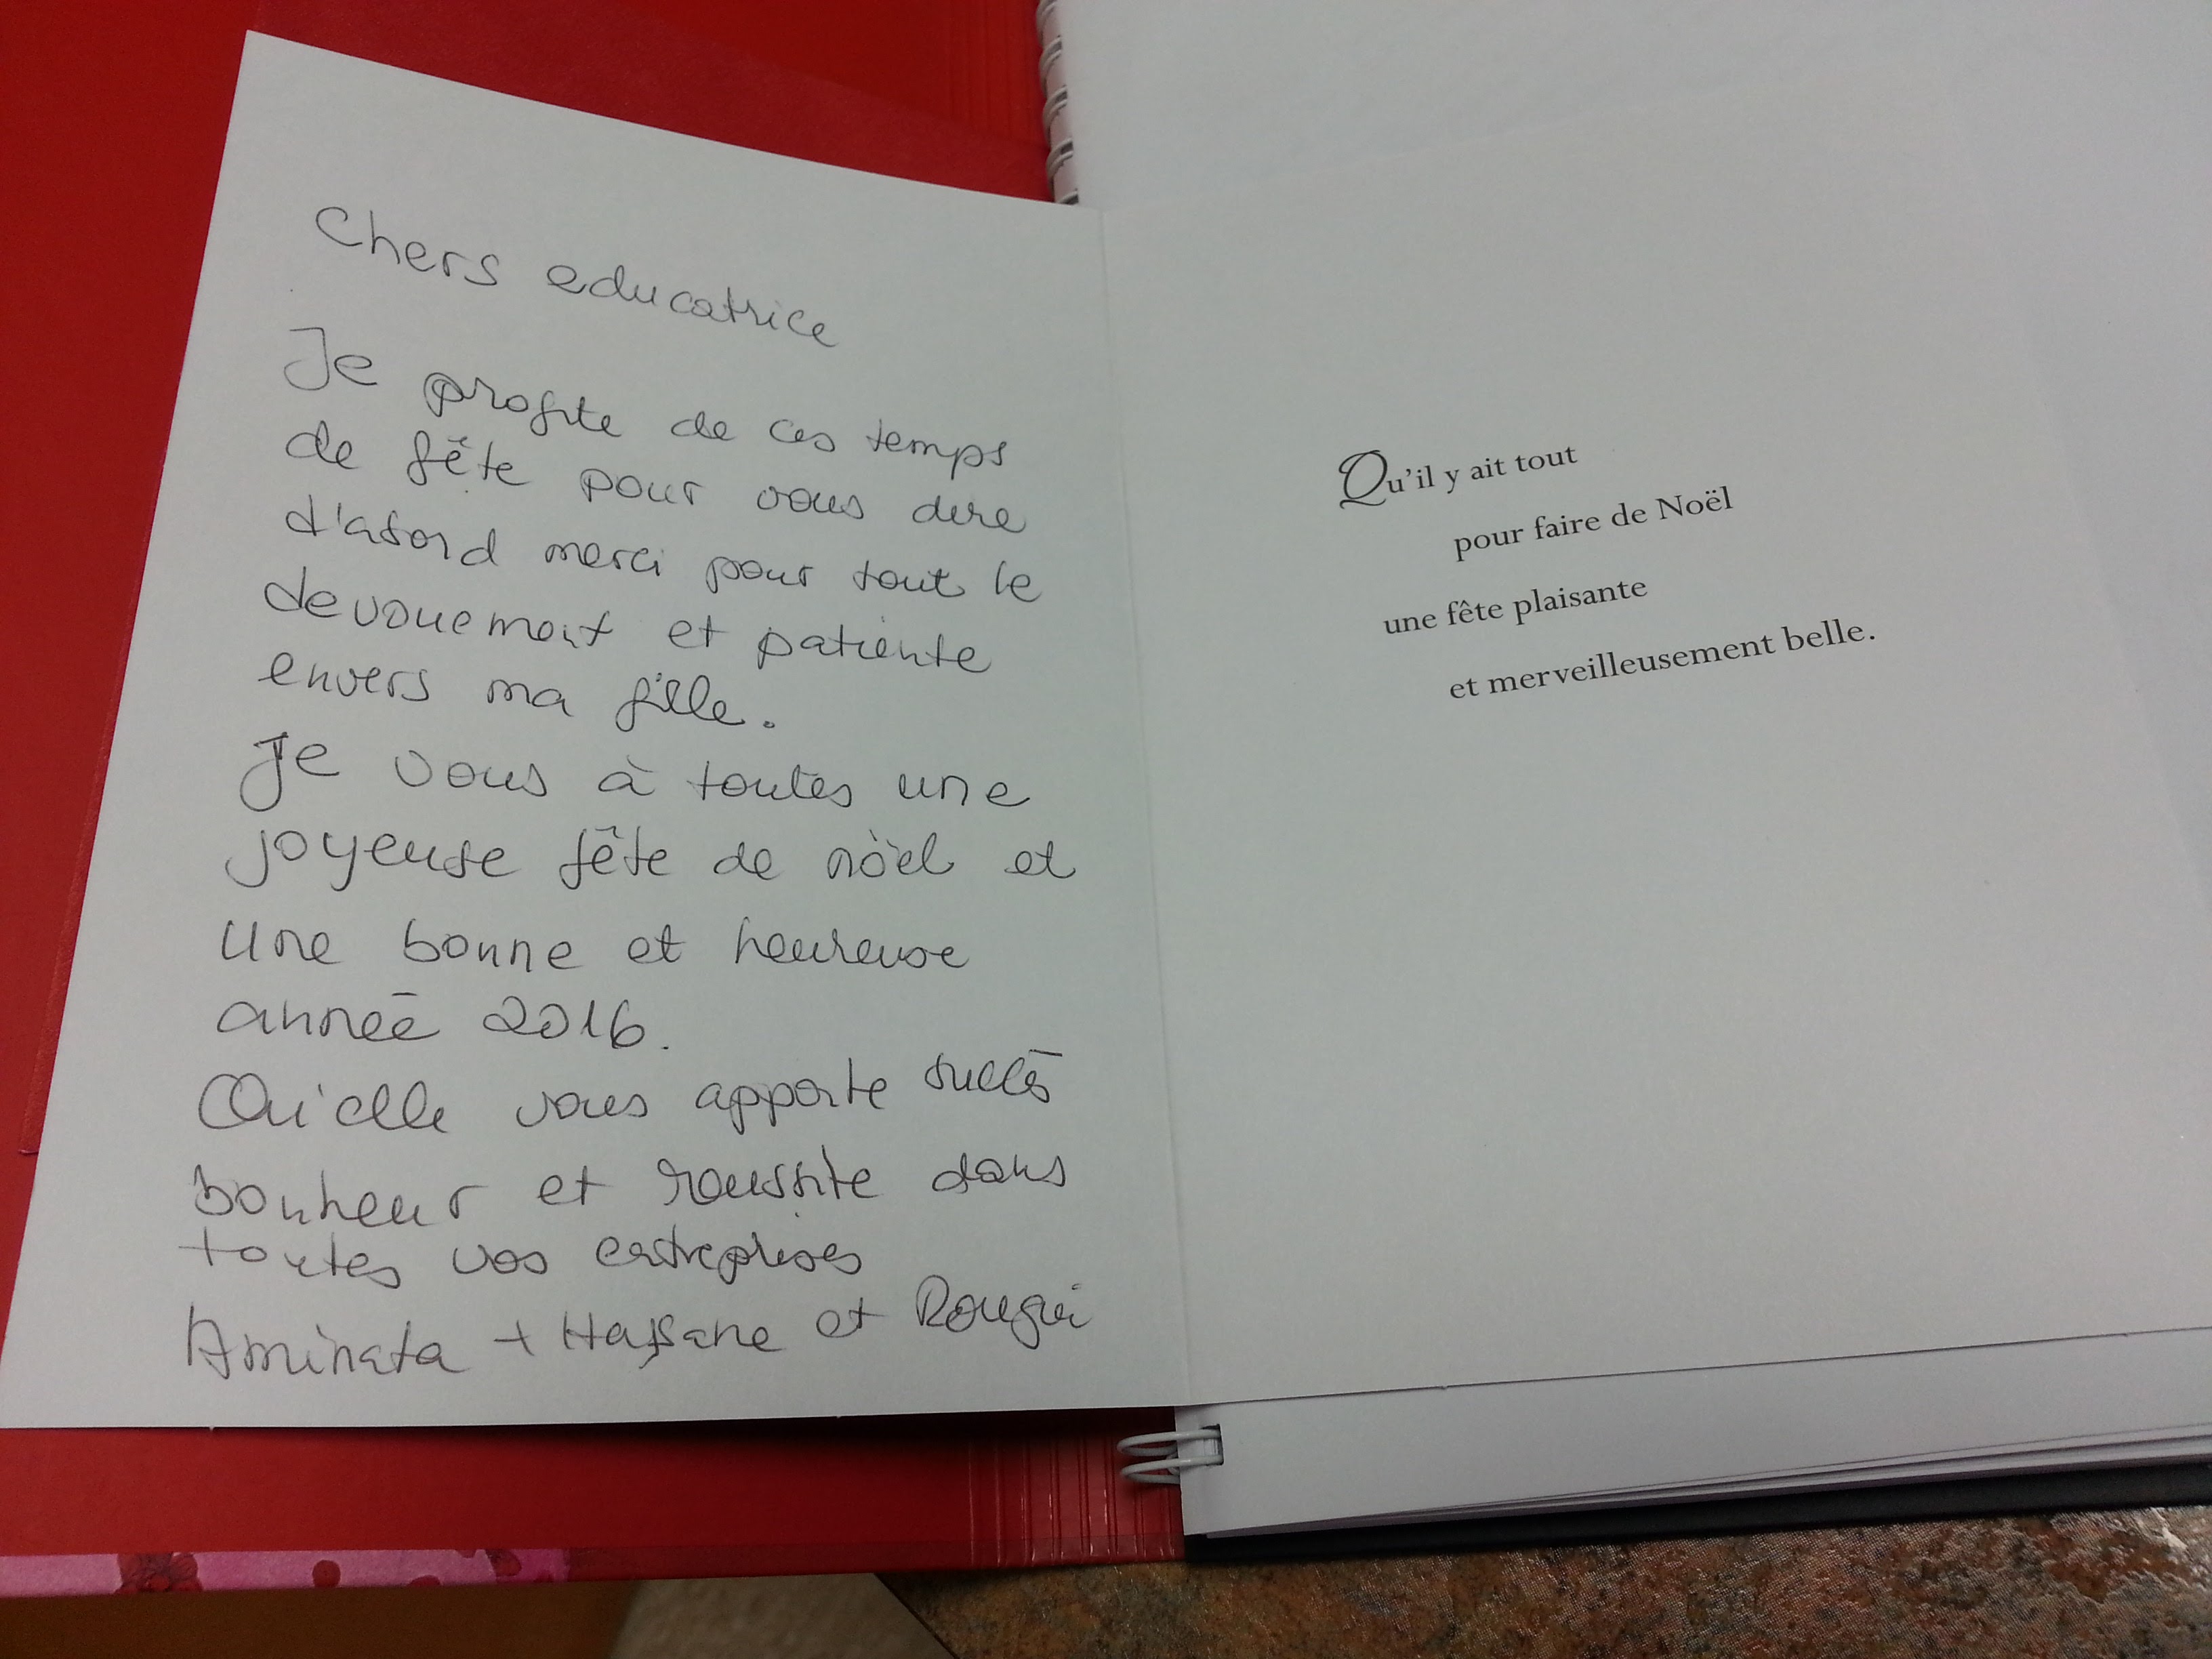 Chers educatrice
Je profite de ces temps
de fête pour vous dire
d'abord merci pour tout le
devouement et patiente
envers ma fille.
Je vous à toutes une
joyeuse fête de nöel et
Une bonne et heureuse
année 2016.
Qu'elle vous apporte succès
bonheur et reussite dans
toutes vos entreprises
Aminata + Hassane et Rougui
Qu'il y ait tout
pour faire de Noël
une fête plaisante
et merveilleusement belle.